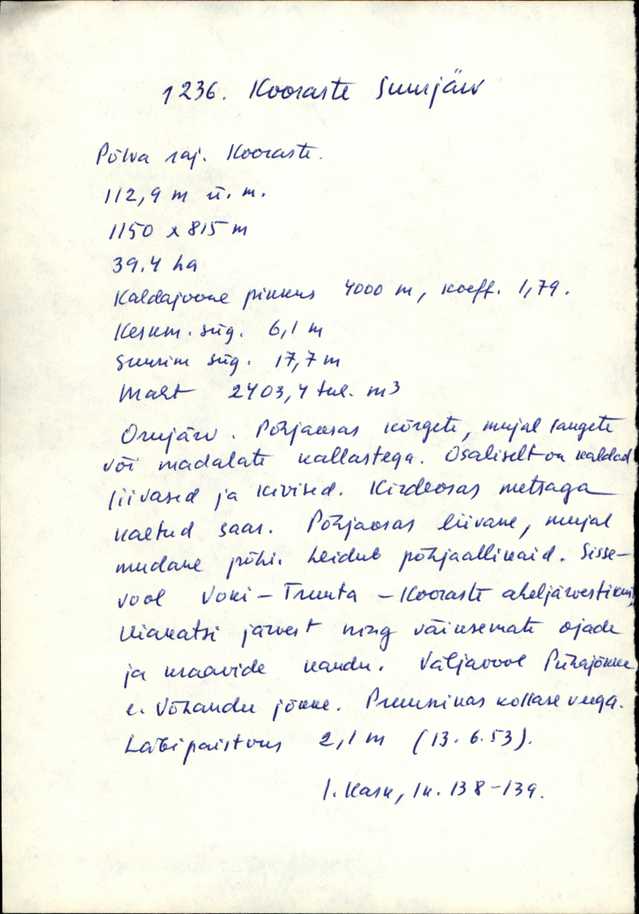 1236. Kooraste Suurjärv
Põlva raj. Kooraste.
112,9 m ü. m.
1150 x 815 m
39.4 ha
Kaldajoone pikkus 4000 m, koeff. 1,79.
Keskm. süg. 6,1 m
Suurim süg. 17,7 m
Maht 2403,4 tuh. m3
Orujärv. Põhjaosas kõrgete, mujal laugete
või madalate kallastega. Osaliselt on kaldad
liivased ja kivised. Kirdeosas metsaga
kaetud saar. Põhjaosas liivane, mujal
mudane põhi. Leidub põhjaallikaid. Sisse-
vool Voki - Truuta - Kooraste aheljärvestikust,
järvest ning väiksemate ojade
ja kraavide kaudu. Väljavool Pühajõkke
e. Võhandu jõkke. Pruunikas kollase veega.
Läbipaistvus 2,1 m (13.6.53).
I. Kask, lk. 138-139.